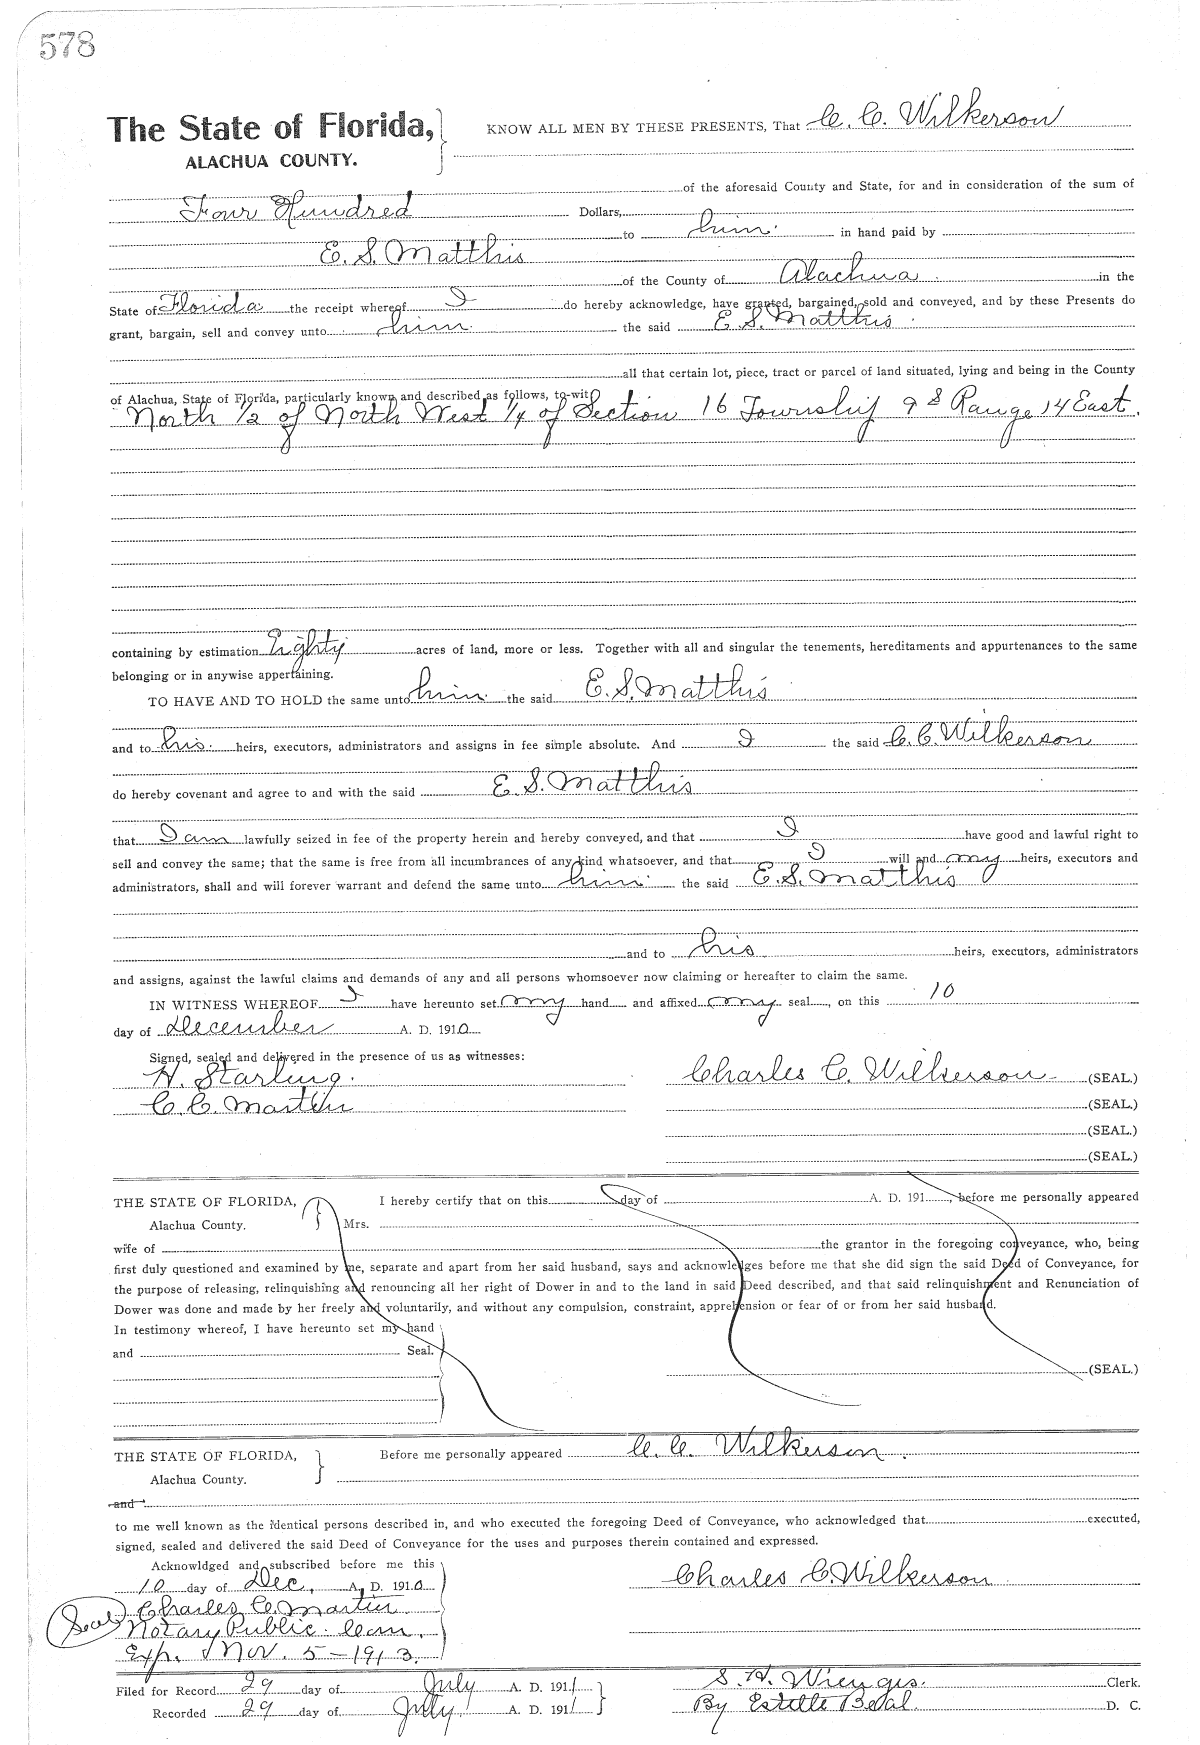 578
The State of Florida, KNOW ALL MEN BY THESE PRESENTS, That C. C. Wilkerson
ALACHUA COUNTY.
of the aforesaid County and State, for and in consideration of the sum of
Four Hundred Dollars,
to him in hand paid by
E. S. Matthis
of the County of Alachua in the
State of Florida the receipt whereof I do hereby acknowledge, have granted, bargained, sold and conveyed, and by these Presents do
grant, bargain, sell and convey unto him the said E. S. Matthis
all that certain lot, piece, tract or parcel of land situated, lying and being in the County
of Alachua, State of Florida, particularly known and described as follows, to-wit:
North 1/2 of North West 1/4 of Section 16 Township 9 S Range 14 East.
containing by estimation Eighty acres of land, more or less. Together with all and singular the tenements, hereditaments and appurtenances to the same
belonging or in anywise appertaining.
TO HAVE AND TO HOLD the same unto him the said E. S. Matthis
and to his heirs, executors, administrators and assigns in fee simple absolute. And I the said C. C. Wilkerson
do hereby covenant and agree to and with the said E. S. Matthis
that I am lawfully seized in fee of the property herein and hereby conveyed, and that I have good and lawful right to
sell and convey the same; that the same is free from all incumbrances of any kind whatsoever, and that I will and my heirs, executors and
administrators, shall and will forever warrant and defend the same unto him the said E. S. Matthis
and to his heirs, executors, administrators
and assigns, against the lawful claims and demands of any and all persons whomsoever now claiming or hereafter to claim the same.
IN WITNESS WHEREOF I have hereunto set my hand and affixed my seal, on this 10
day of December A. D. 1910
Signed, sealed and delivered in the presence of us as witnesses:
H. Starling. Charles C. Wilkerson (SEAL.)
C. C. Martin (SEAL.)
(SEAL.)
(SEAL.)
THE STATE OF FLORIDA, I hereby certify that on this day of A. D. 191 , before me personally appeared
Alachua County. Mrs.
wife of the grantor in the foregoing conveyance, who, being
first duly questioned and examined by me, separate and apart from her said husband, says and acknowledges before me that she did sign the said Deed of Conveyance, for
the purpose of releasing, relinquishing and renouncing all her right of Dower in and to the land in said Deed described, and that said relinquishment and Renunciation of
Dower was done and made by her freely and voluntarily, and without any compulsion, constraint, apprehension or fear of or from her said husband.
In testimony whereof, I have hereunto set my hand
and Seal.
(SEAL.)
THE STATE OF FLORIDA, Before me personally appeared C. C. Wilkerson.
Alachua County.
and
to me well known as the identical persons described in, and who executed the foregoing Deed of Conveyance, who acknowledged that executed,
signed, sealed and delivered the said Deed of Conveyance for the uses and purposes therein contained and expressed.
Acknowldged and subscribed before me this Charles C. Wilkerson
10 day of Dec, A. D. 1910
Seal Charles C. Martin
Notary Public. Com.
Exp. Nov. 5-1913.
Filed for Record 29 day of July A. D. 1911 S. H. Wienges. Clerk.
Recorded 29 day of July A. D. 1911 By Estelle Beal D. C.